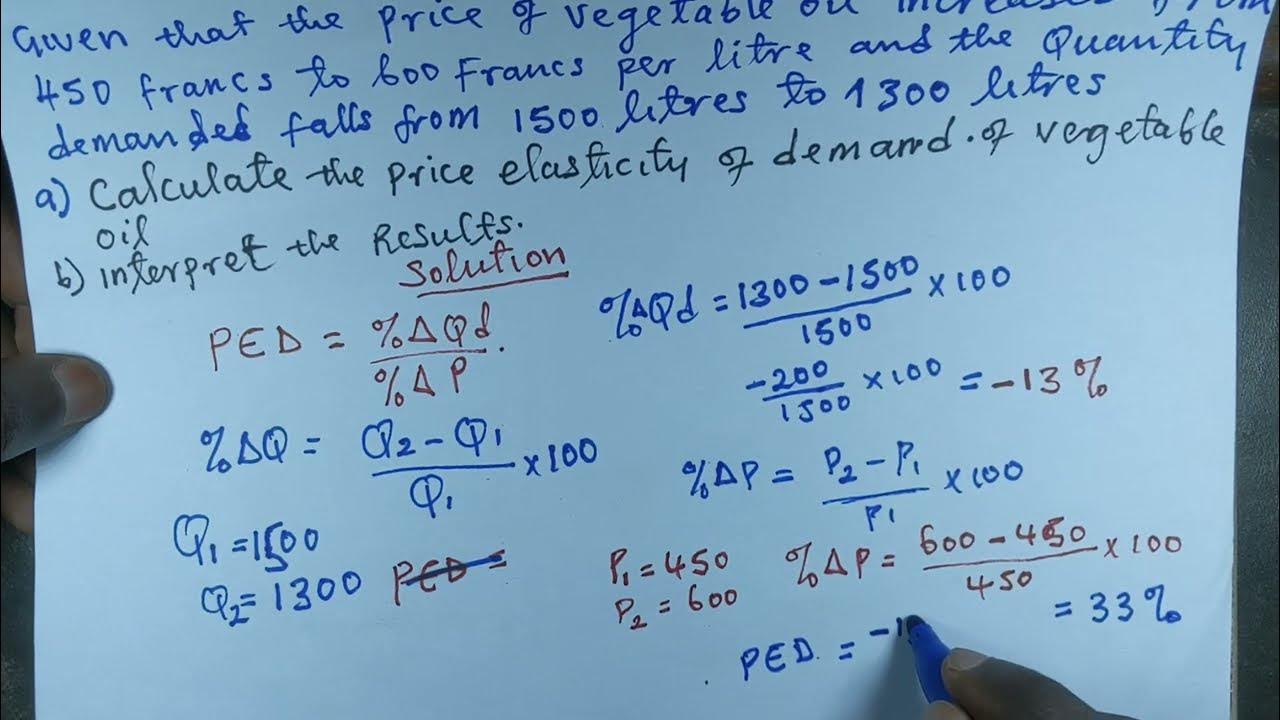 Given that the price of vegetable oil increases from
450 francs to 600 Francs per litre and the Quantity
demanded falls from 1500 litres to 1300 litres
a) Calculate the price elasticity of demand. of vegetable
oil
b) interpret the Results.
Solution
PED = %ΔQd / %ΔP .
%ΔQ = Q2 - Q1 / Q1 × 100
Q1 = 1500
Q2 = 1300 PED =
%ΔQd = 1300 - 1500 / 1500 × 100
-200 / 1500 × 100 = -13%
%ΔP = P2 - P1 / P1 × 100
P1 = 450
P2 = 600
%ΔP = 600 - 450 / 450 × 100
= 33%
PED. = -1